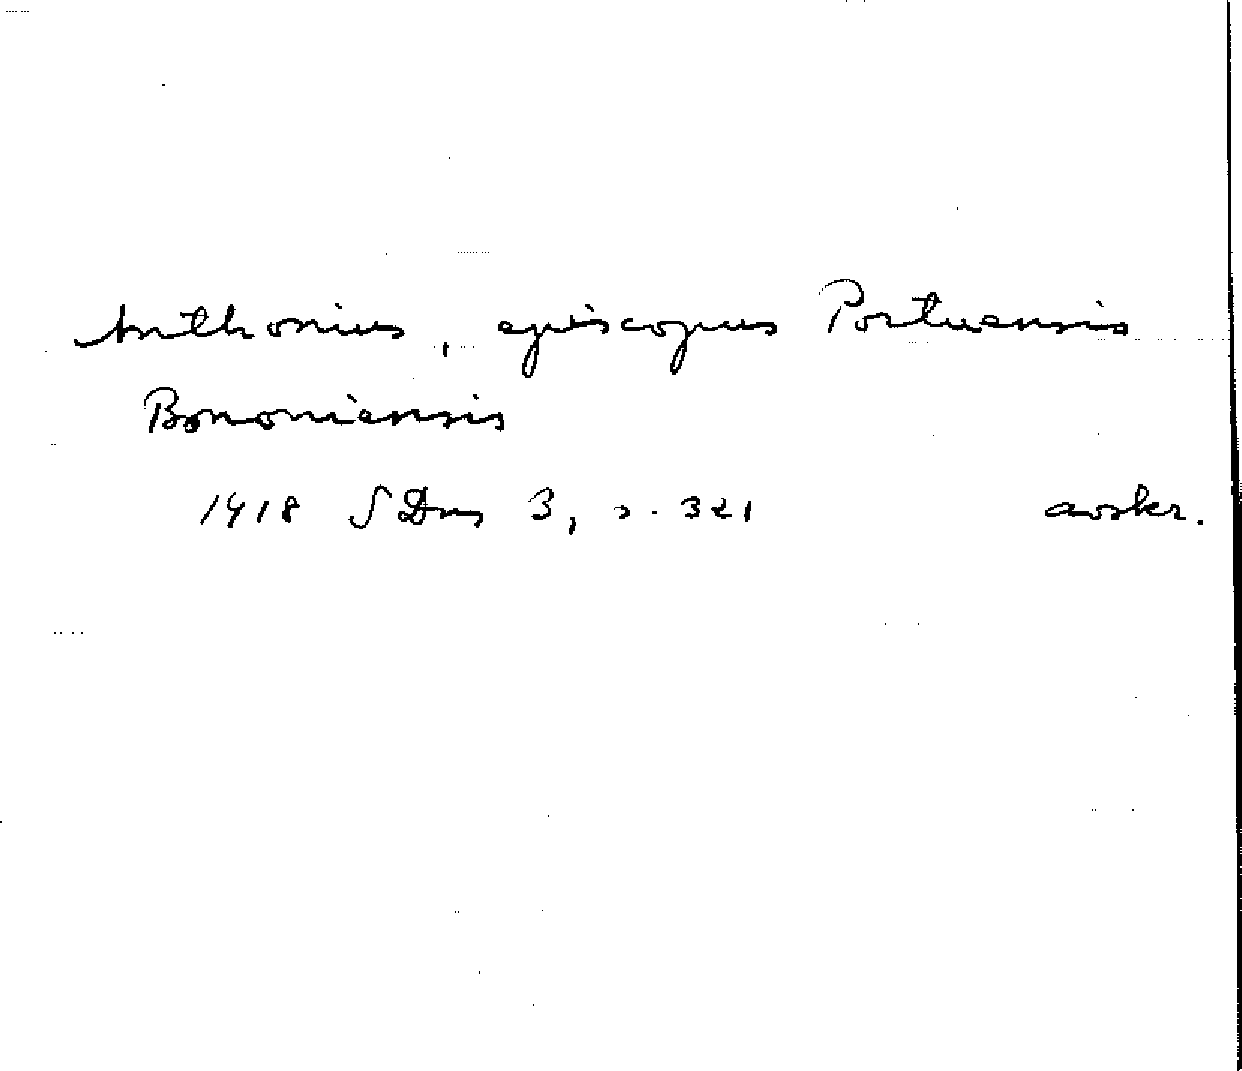 Anthonius, episcopus Portuensis
Bononiensis
1418 SDns 3, s. 321 avskr.